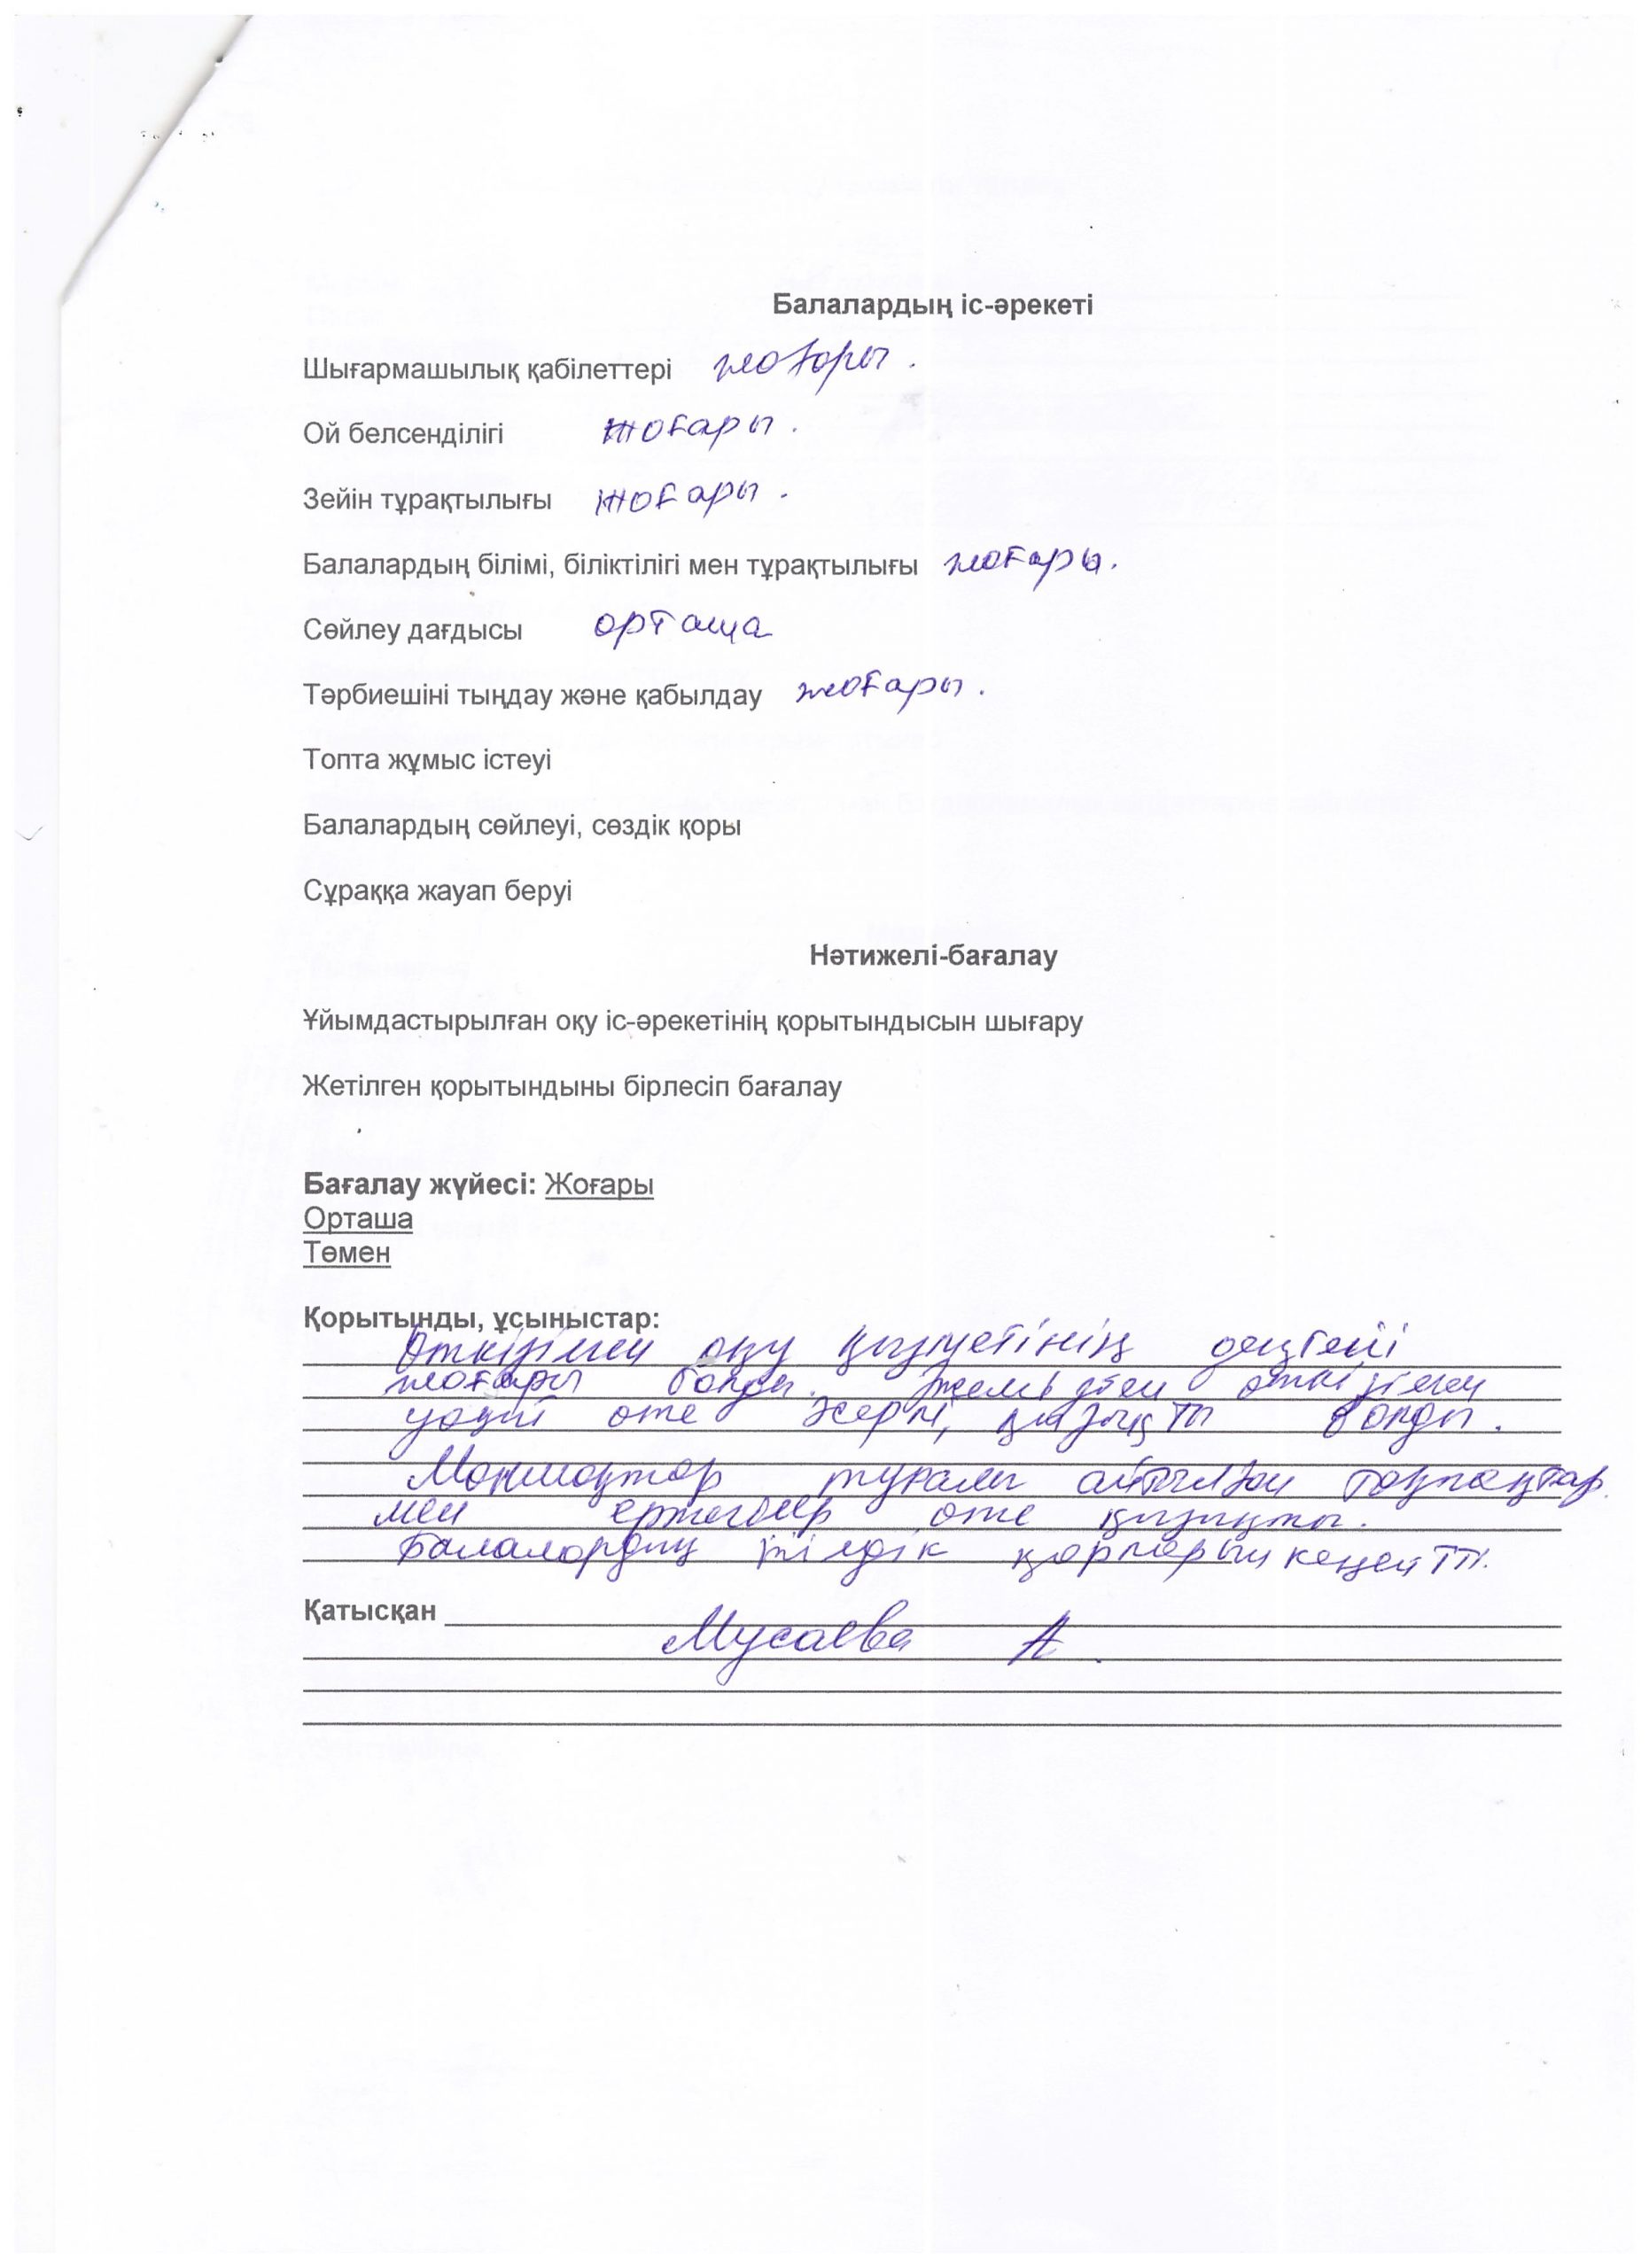 Балалардың іс-әрекеті
Шығармашылық қабілеттері жоғары.
Ой белсенділігі жоғары.
Зейін тұрақтылығы жоғары.
Балалардың білімі, біліктілігі мен тұрақтылығы жоғары.
Сөйлеу дағдысы орташа
Тәрбиешіні тыңдау және қабылдау жоғары.
Топта жұмыс істеуі
Балалардың сөйлеуі, сөздік қоры
Сұраққа жауап беруі
Нәтижелі-бағалау
Ұйымдастырылған оқу іс-әрекетінің қорытындысын шығару
Жетілген қорытындыны бірлесіп бағалау
Бағалау жүйесі: Жоғары
Орташа
Төмен
Қорытынды, ұсыныстар:
Өткізілген оқу қызметінің деңгейі
жоғары болды. өткізілген
өте әсерлі, қызықты болды.
туралы айтылған тақпақтар
мен ертегілер өте қызықты.
Балалардың тілдік қорларын кеңейтті.
Қатысқан
Мусаева А.